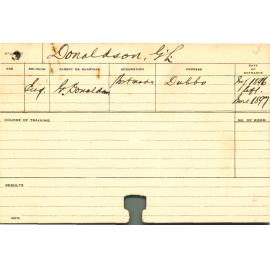 Donaldson, G L
AGE RELIGION PARENT OR GUARDIAN OCCUPATION ADDRESS DATE OF ENTRANCE
G. Donaldson Dubbo
1 Left.
June 1897
COURSE OF TRAINING NO. OF ROOM
RESULTS
NOTE